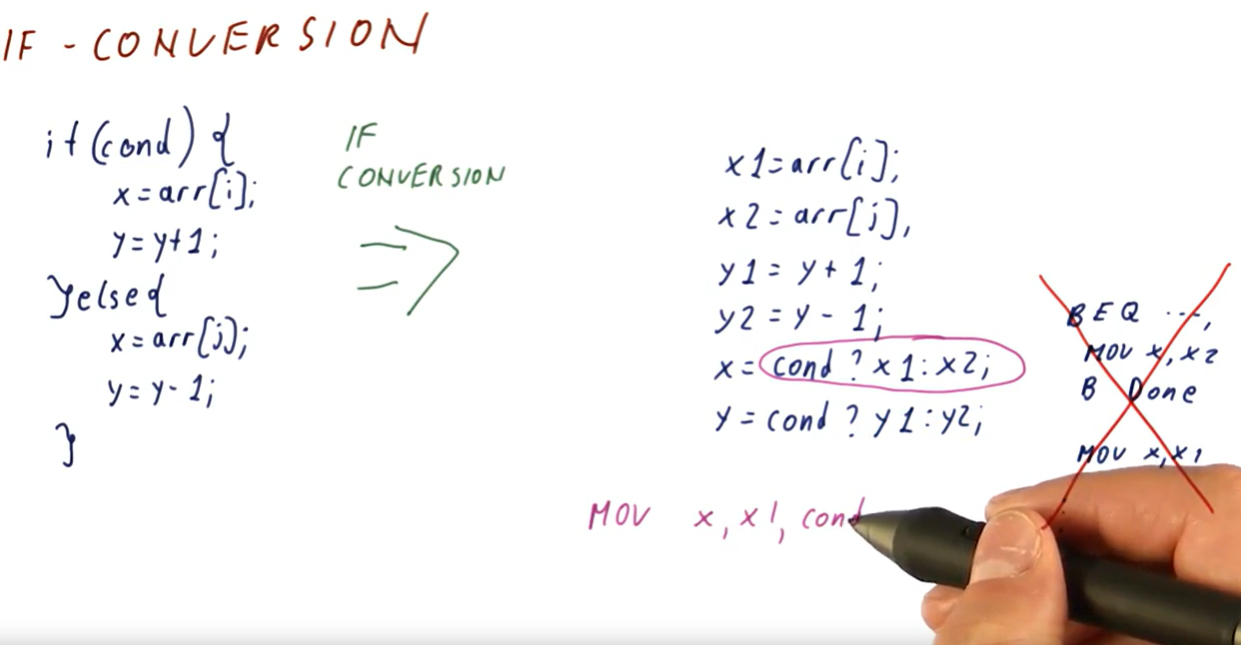 IF - CONVERSION
if (cond) {
x = arr[i];
y = y+1;
}else{
x = arr[j];
y = y-1;
}
IF
CONVERSION
=>
x1=arr[i];
x2=arr[j],
y1 = y + 1;
y2 = y - 1;
x = cond ? x1 : x2;
y = cond ? y1 : y2;
BEQ ...,
MOV x, x2
B Done
MOV x, x1
MOV x, x1, cond